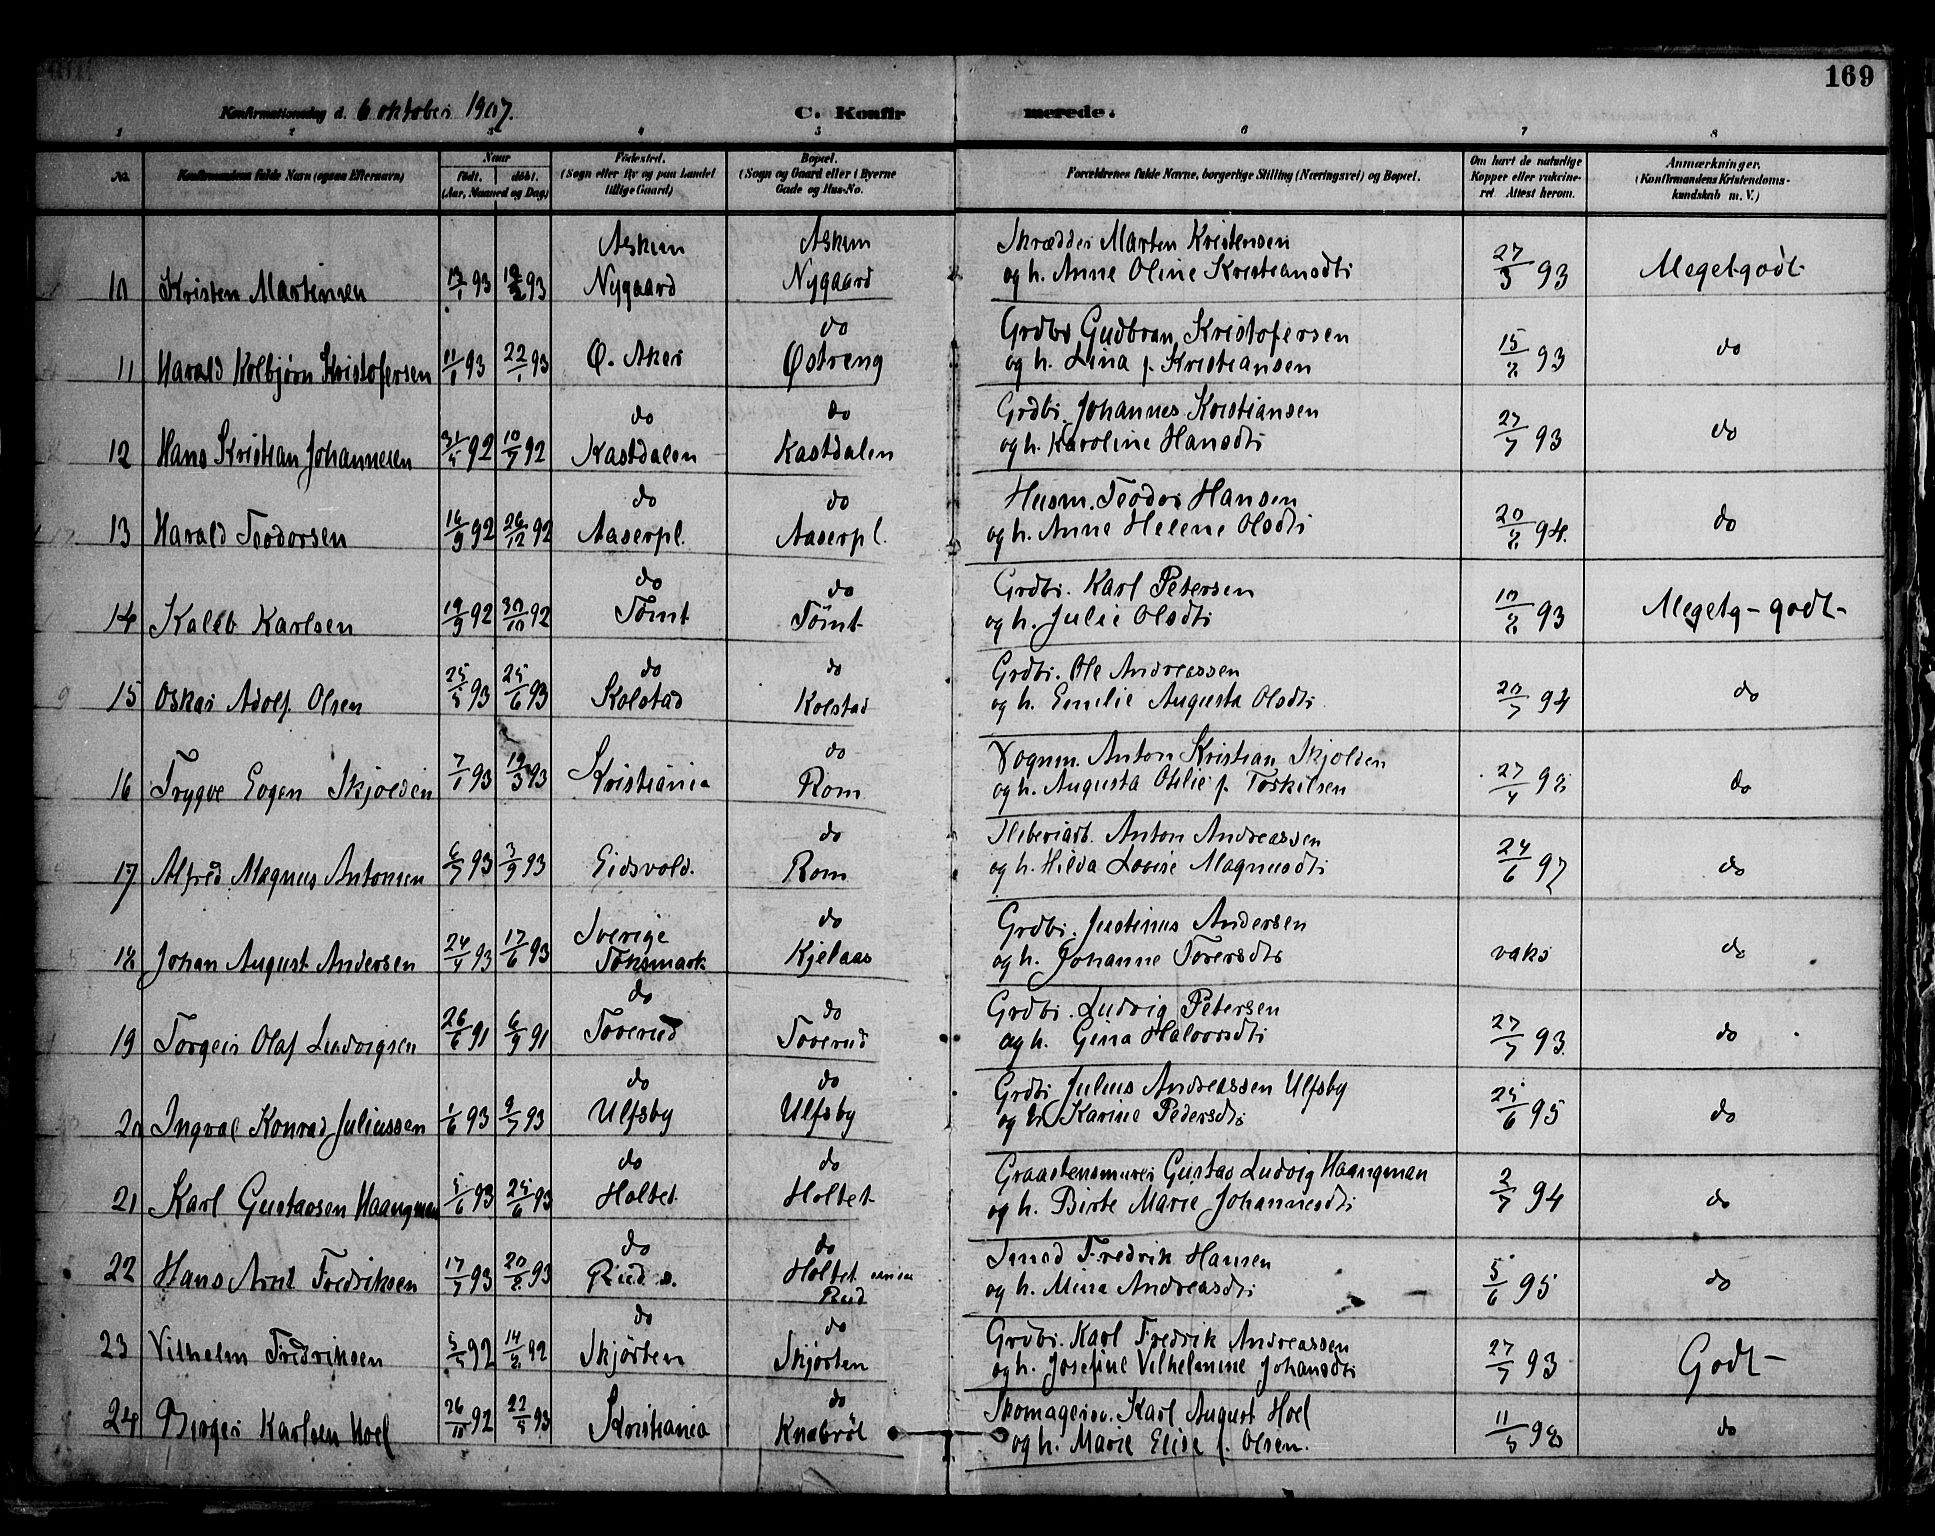 169
Konfirmationsdag d. 6 oktober 1907. C. Konfirmerede.
1 2 3 4 5 6 7 8
No. Konfirmandens fulde Navn (ogsaa Efternavn) Naar født. døbt. (Aar, Maaned og Dag) Fødested. (Sogn eller By og paa Landet tillige Gaard) Bopæl. (Sogn og Gaard eller i Byerne Gade og Hus-No. Forældrenes fulde Navne, borgerlige Stilling (Næringsvei) og Bopæl. Om havt de naturlige Kopper eller vakcineret. Attest herom. Anmærkninger. (Konfirmandens Kristendomskundskab m. V.)
Askim Askim Skrædder Marten Kristensen
10 Kristen Martensen 13/1 93 19/2 93 Nygaard Nygaard og h. Anne Oline Kristiansdtr 27/3 93 Megetgodt
do Grdbr Gudbran Kristofersen
11 Harald Kolbjørn Kristofersen 11/1 93 22/1 93 Ø. Aker Østreng og h. Lina f. Kristiansen 15/8 93 do
do do Grdbr. Johannes Kristiansen
12 Hans Kristian Johannesen 31/5 92 10/7 92 Kastdalen Kastdalen og h. Karoline Hansdtr 27/7 93 do
do do Husm. Teodor Hansen
13 Harald Teodorsen 16/9 92 26/12 92 Aaserpl. Aaserpl. og h. Anne Helene Olsdtr 20/8 94. do
do do Grdbr. Karl Petersen
14 Kaleb Karlsen 19/9 92 30/10 92 Tømt Tømt og h. Julie Olsdtr 10/8 93 Megetg - godt
do do Grdbr. Ole Andreassen
15 Oskar Adolf Olsen 25/5 93 25/6 93 Kolstad Kolstad og h. Emilie Augusta Olsdtr 20/7 94 do
do Vognm. Anton Kristian Skjolden
16 Trygve Eogen Skjolden 7/1 93 19/3 93 Kristiania Rom og h. Augusta Otilie f. Torkilsen 27/4 98 do
do Sliberiarb. Anton Andreassen
17 Alfred Magnus Antonsen 6/7 93 3/9 93 Eidsvold. Rom og h. Hilda Lovise Magnusdtr 24/6 97 do
Sverige do Grdbr. Justinus Andersen
18 Johan August Andersen 24/4 93 17/6 93 Töksmark Kjelaas og h. Johanne Torersdtr vaks do
do do Grdbr. Ludvig Petersen
19 Torgeir Olaf Ludvigsen 26/6 91 6/9 91 Toverud Toverud og h. Gina Halvorsdtr 27/7 93 do
do do Grdbr Julius Andreassen Ulfsby
20 Ingval Konrad Juliussen 1/6 93 9/7 93 Ulfsby Ulfsby og h. Karine Pedersdtr 25/6 95 do
do do Graastensmurer Gustav Ludvig Haangman
21 Karl Gustavsen Haangman 5/6 93 25/6 93 Holtet Holtet og h. Birte Marie Johannesdtr 2/7 94 do
do do Smed Fredrik Hansen
22 Hans Arnt Fredriksen 17/7 93 20/8 93 Rud s. Holtet under Rud og h. Mina Andreasdtr 5/6 95 do
do do Grdbr. Karl Fredrik Andreassen
23 Vilhelm Fredriksen 5/7 92 14/8 92 Skjørten Skjørten og h. Josefine Vilhelmine Johansdtr 27/7 93 Godt
do Skomagersv. Karl August Hoel
24 Birger Karlsen Hoel 26/10 92 22/5 93 Kristiania Knabrøt og h. Marie Elise f. Olsen. 11/5 98 do